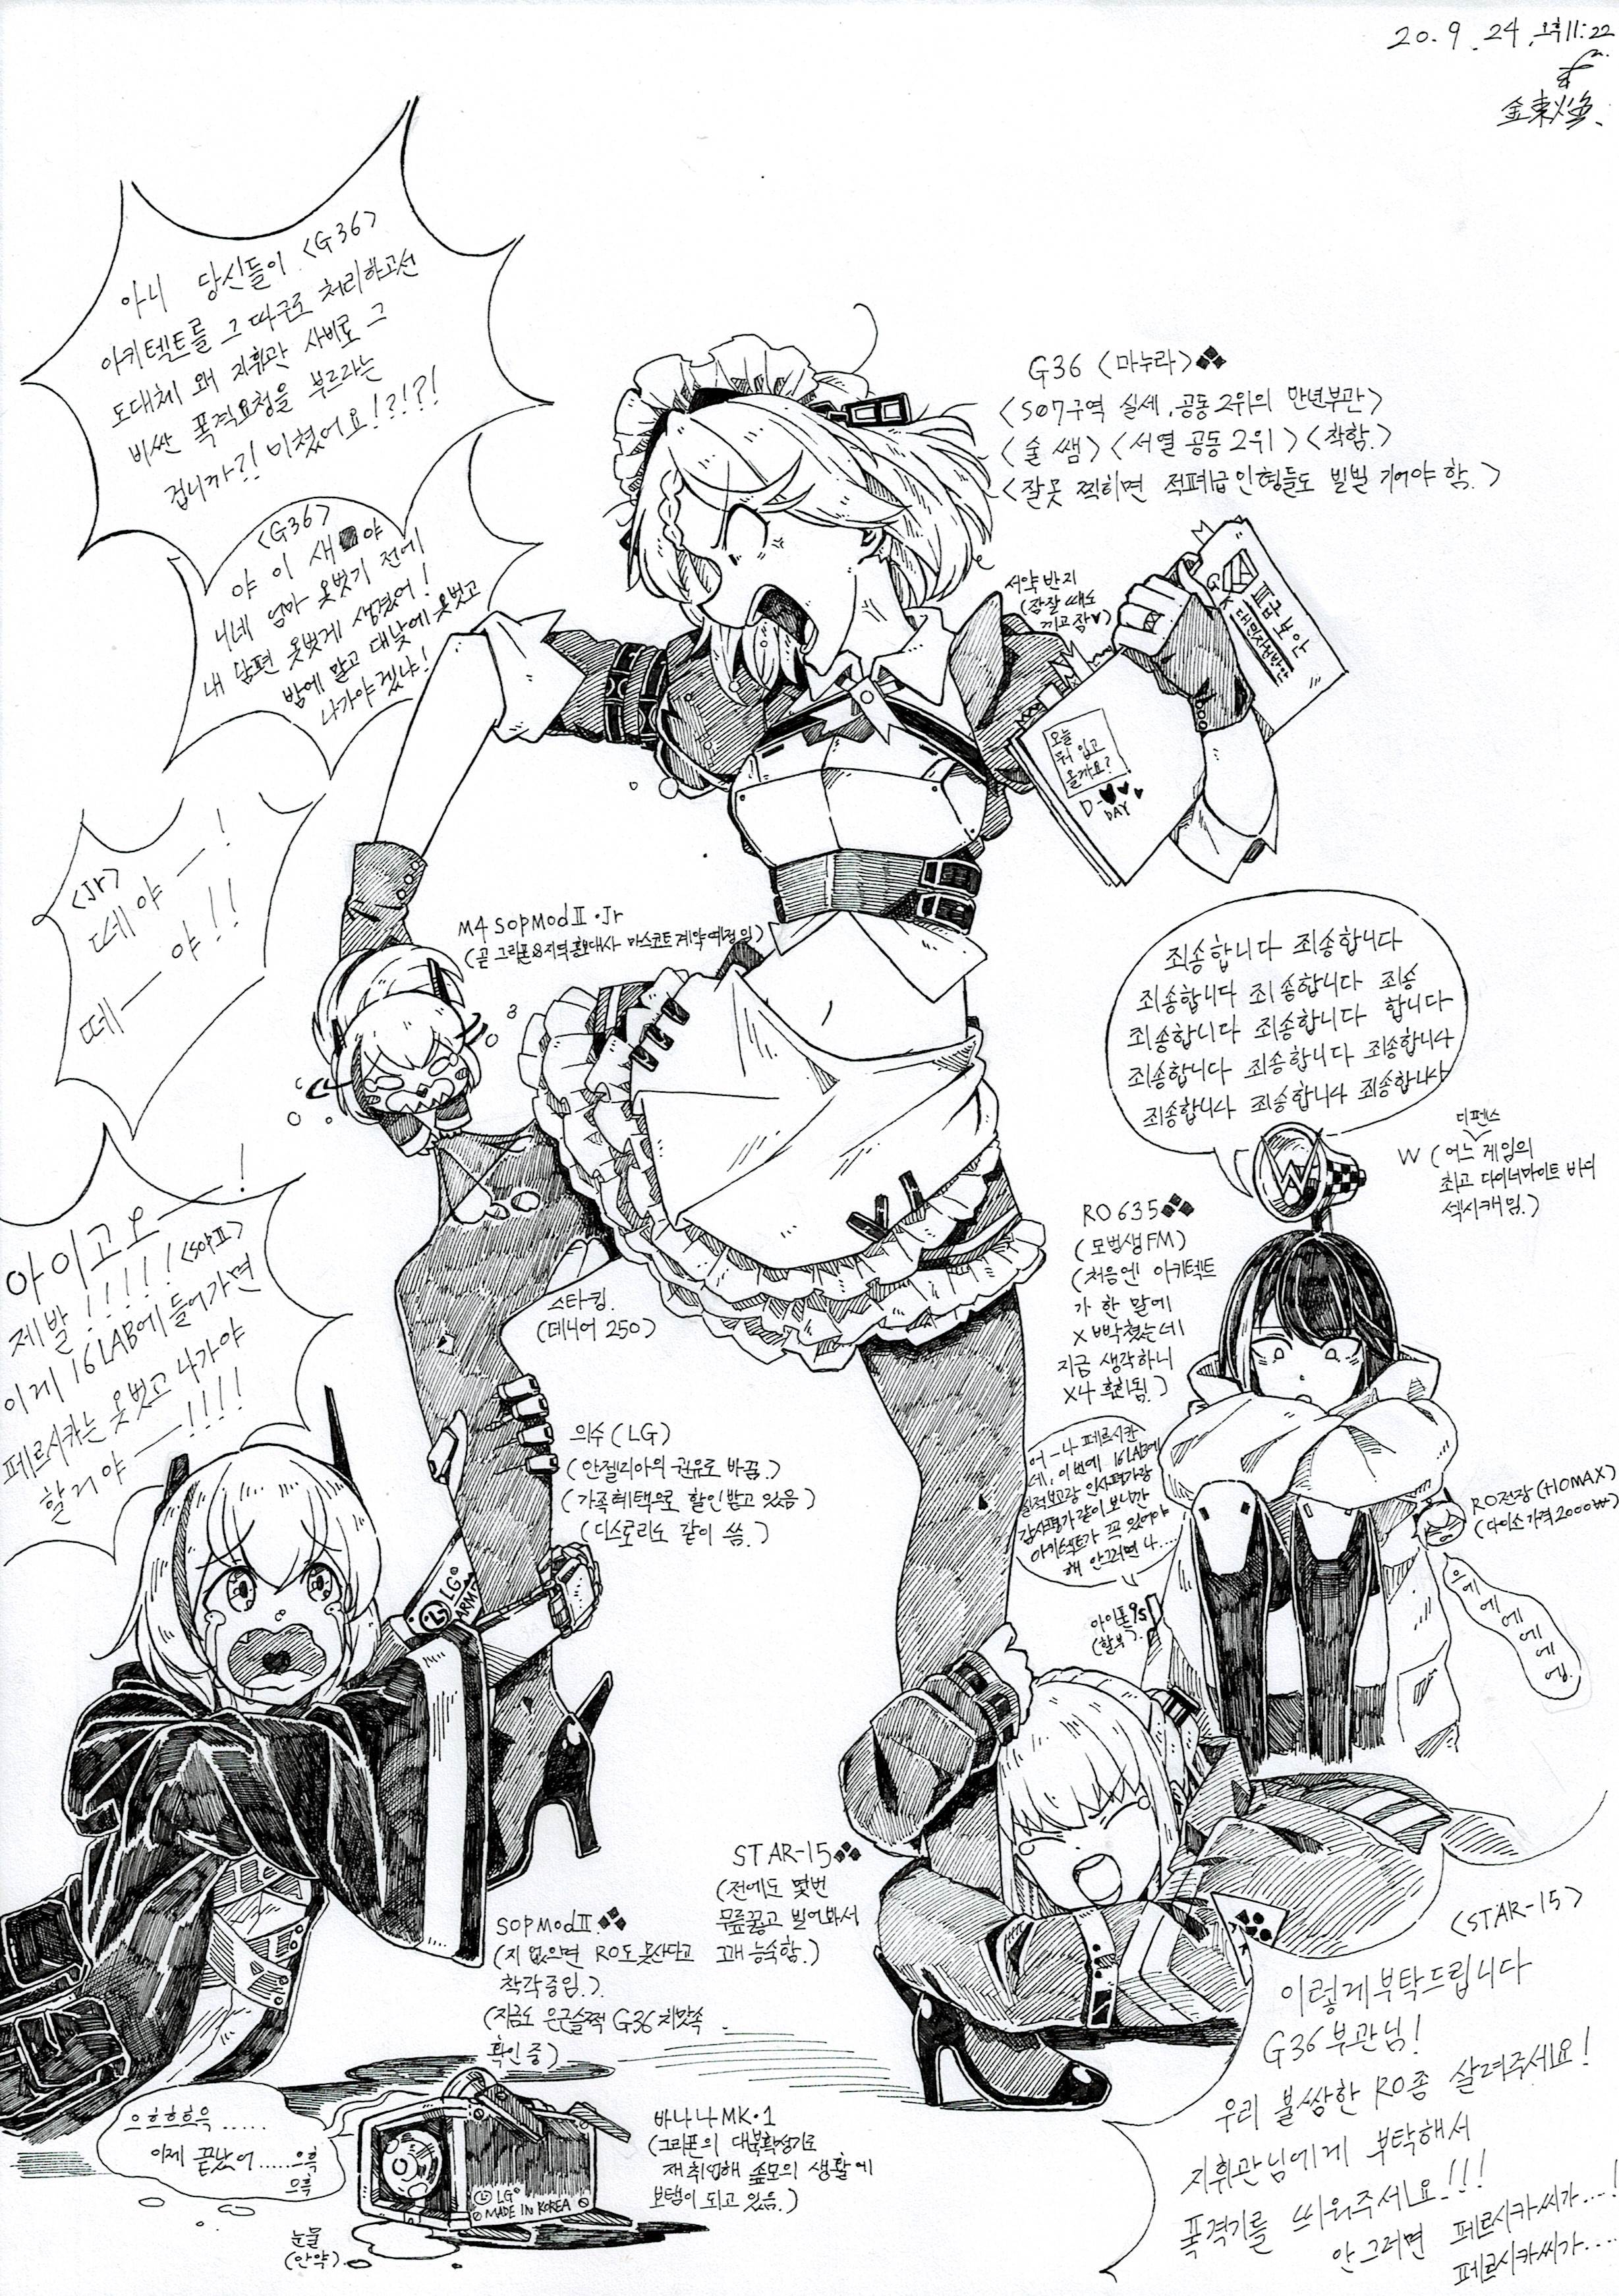 20.9.24. 오후 11:22
아니 당신들이 <G36>
아키텍트를 그 따구로 처리하고선
도대체 왜 지휘관 사비로 그
비싼 폭격요청을 부르라는
겁니까?! 미쳤어요!?!?!
<G36>
야 이 새■야
니네 엄마 옷벗기 전에
내 남편 옷벗게 생겼어!
밤에 말고 대낮에 옷벗고
나가야겠냐!
G36 <마누라>
<S07구역 실세, 공동 2위의 만년부관>
<술 쌤> <서열 공동 2위> <착함.>
<잘못 찍히면 적폐급 인형들도 빌빌 기어야 함.>
서약반지
(잠잘 때도
끼고 잠♥)
G&K
Ⅲ급 보안
오늘
뭐 입고
올까요?
D-♥
DAY
<Jr>
떼야—!
떼—야!!
M4 SOPMOD Ⅱ·Jr
(곧 그리폰 &지역 홍보대사 마스코트 계약예정임)
죄송합니다 죄송합니다
죄송합니다 죄송합니다 죄송
죄송합니다 죄송합니다 합니다
죄송합니다 죄송합니다 죄송합니다
죄송합니다 죄송합니다 죄송합니다
W
디펜스
W (어느 게임의
최고 다이너마이트 바디
섹시캐임.)
RO635
(모범생FM)
(처음엔 아키텍트
가 한 말에
X빡쳤는데
지금 생각하니
X4 후회됨.)
아이고오—!
제발!!!!! <SOPⅡ>
이게 16LAB에 들어가면
페르시카는 옷벗고 나가야
할거야—!!!!
스타킹.
(데니어 250)
의수 (LG)
(안젤리아의 권유로 바꿈.)
(가족혜택으로 할인받고 있음)
(디스토리도 같이 씀.)
LG
ARM
어-나 페르시칸
데, 이번에 16LAB에
실적보고랑 인사평가랑
감사평가 같이 보니까
아키텍트가 꼭 있어야
해 안그러면 나....
아이폰9s
(할부)
RO전장 (HOMAX)
(다이소 가격 2000₩)
으에
에
에
에
에엥.
STAR-15
(전에도 몇번
무릎꿇고 빌어봐서
꽤 능숙함.)
SOPMOD Ⅱ
(지 없으면 RO도 못산다고
착각중임.)
(지금도 은근슬쩍 G36 치맛속
확인 중)
<STAR-15>
이렇게 부탁드립니다
G36 부관님!
우리 불쌍한 RO좀 살려주세요!
지휘관님에게 부탁해서
폭격기를 띄워주세요!!!
안그러면 페르시카씨가...!
페르시카씨가....
으흐흐흐윽.....
이제 끝났어....으흑
으흑
눈물
(안약)
LG
MADE IN KOREA
바나나MK·1
(그리폰의 대북확성기로
재취업해 숲모의 생활에
보탬이 되고 있음.)